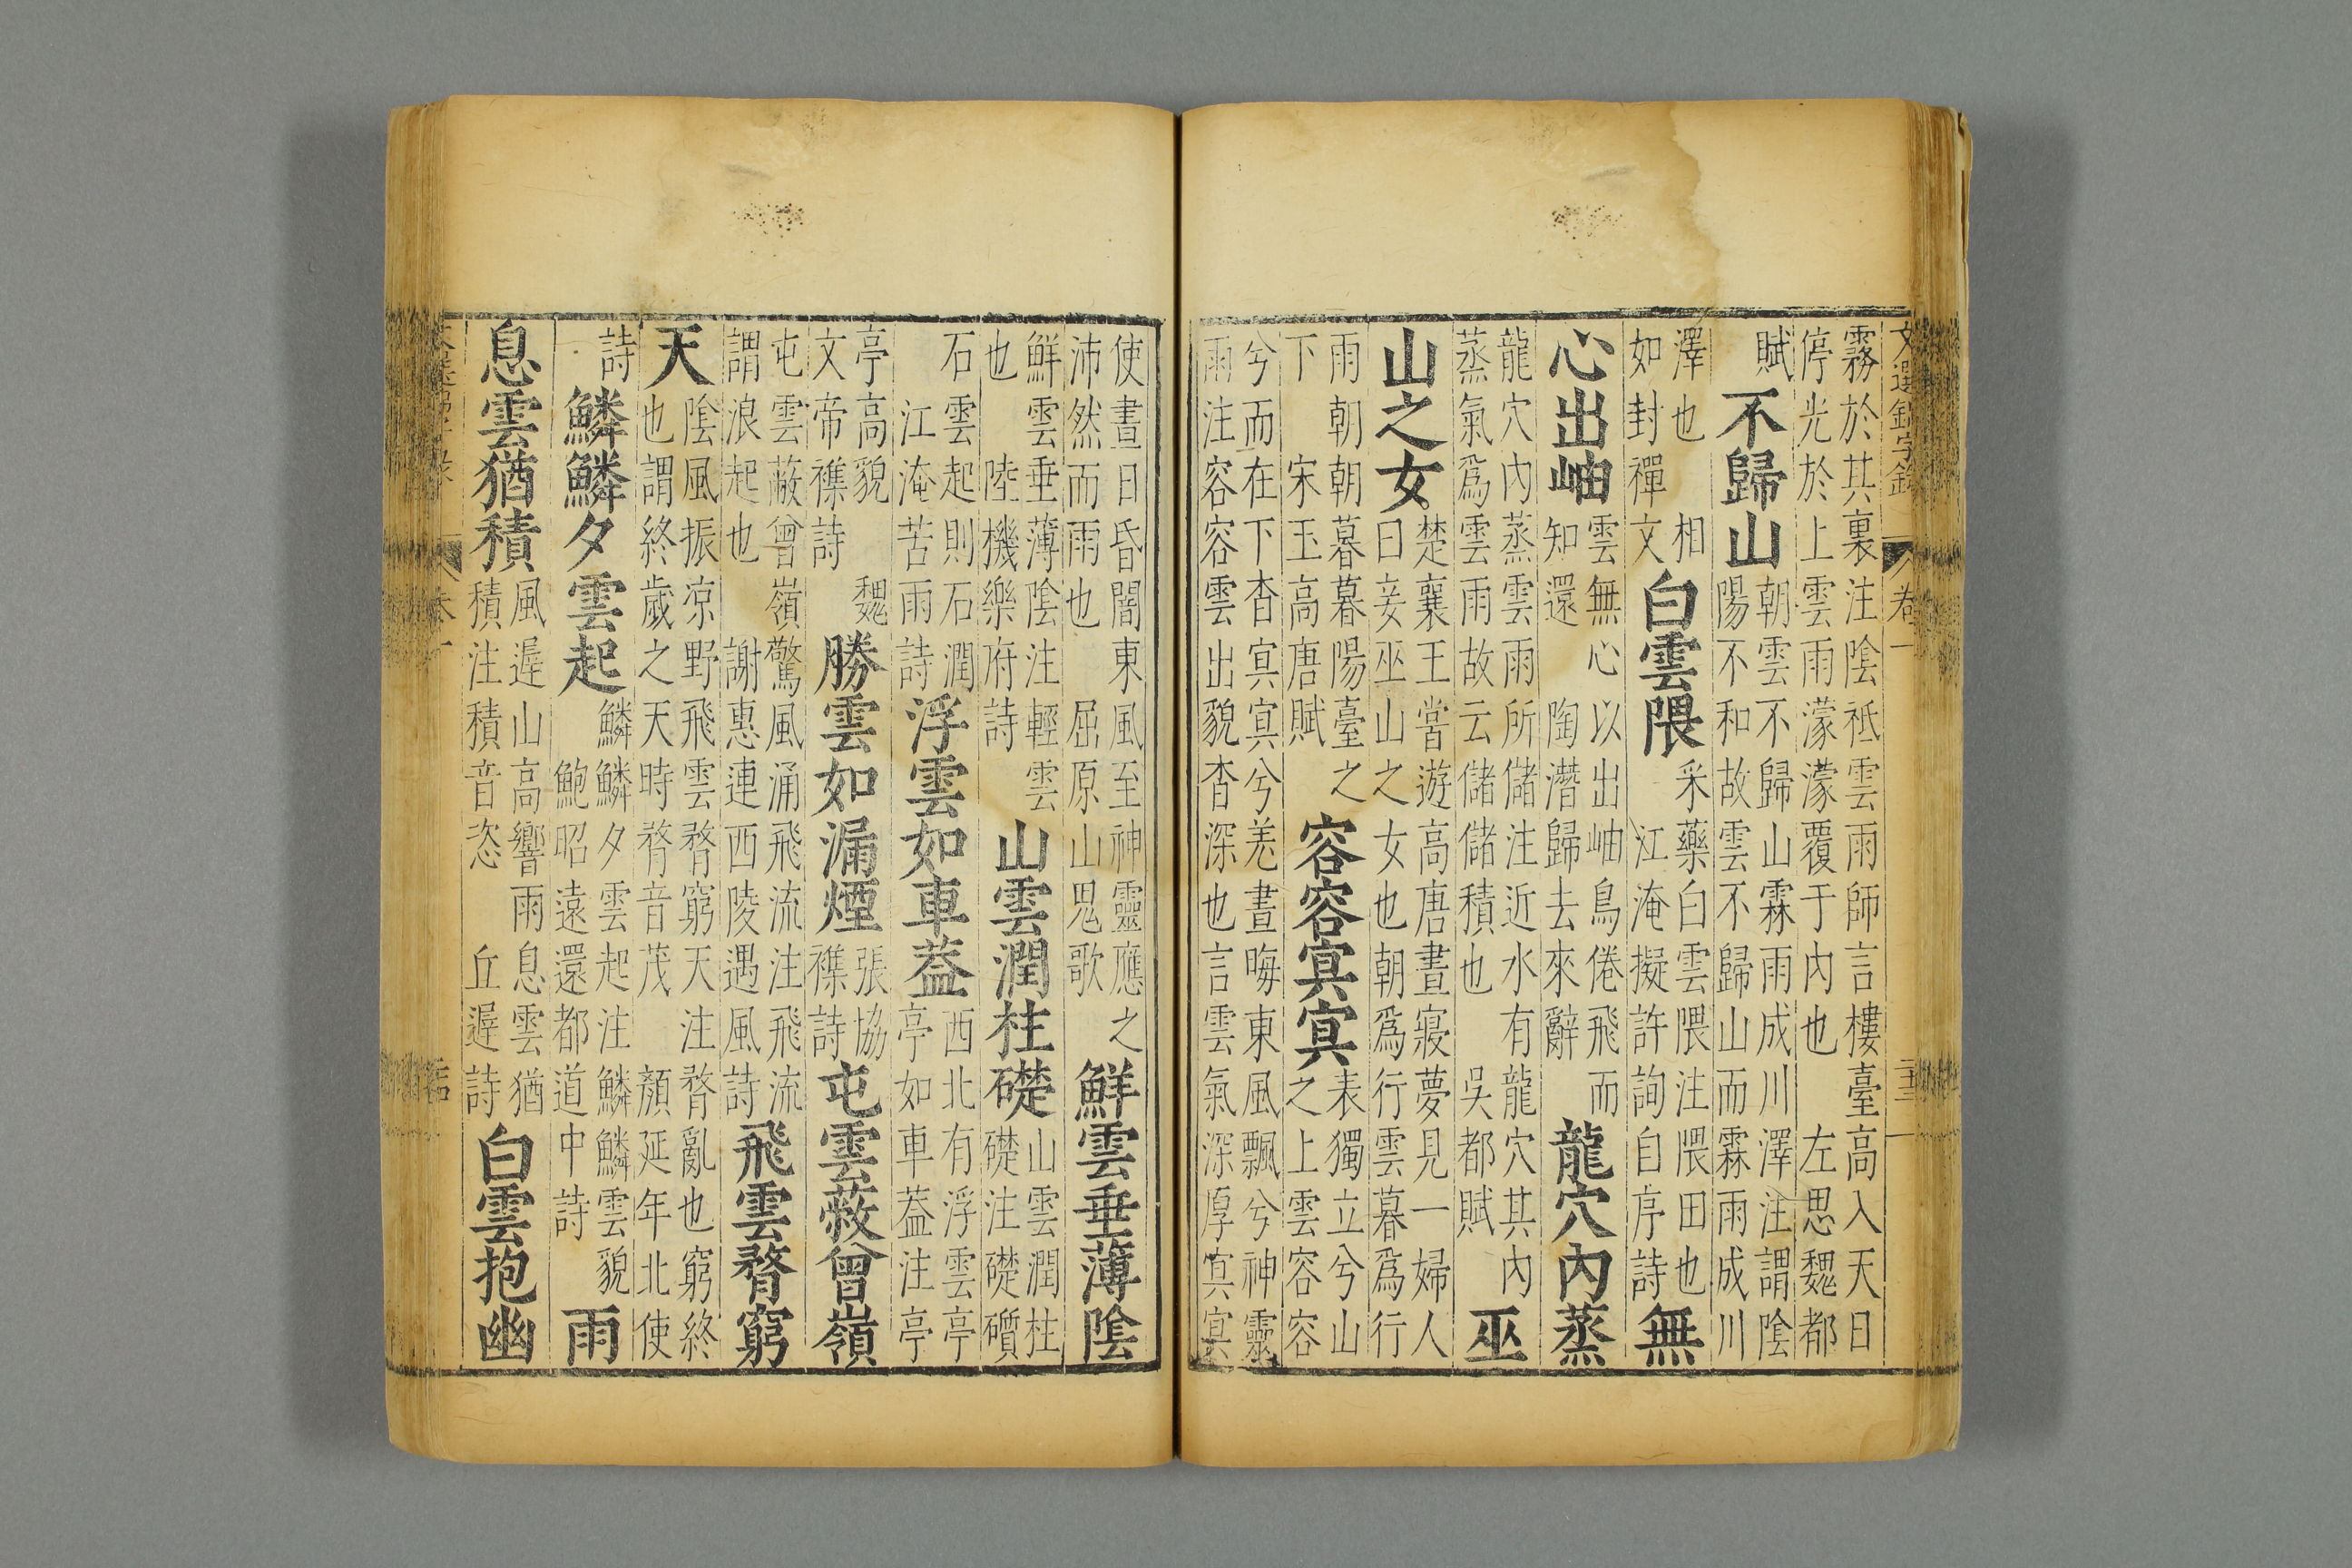 文選錦字錄 卷一
霧於其裏注陰袛雲雨師言樓臺高入天日
停光於上雲雨濛濛覆于內也 左思魏都
賦
不歸山
朝雲不歸山霖雨成川澤注謂陰
陽不和故雲不歸山而霖雨成川
澤也 相
如封禪文
白雲隈
采藥白雲隈注隈田也
江淹擬許詢自序詩
無
心出岫
雲無心以出岫鳥倦飛而
知還 陶潛歸去來辭
龍穴內蒸
龍穴內蒸雲雨所儲注近水有龍穴其內
蒸氣爲雲雨故云儲儲積也 吳都賦
巫
山之女
楚襄王嘗遊高唐晝寢夢見一婦人
曰妾巫山之女也朝爲行雲暮爲行
雨朝朝暮暮陽臺之
下 宋玉高唐賦
容容冥冥
表獨立兮山
之上雲容容
兮而在下杳冥冥兮羌晝晦東風飄兮神靈
雨注容容雲出貌杳深也言雲氣深厚冥冥
使晝日昏闇東風至神靈應之
沛然而雨也 屈原山鬼歌
鮮雲垂薄陰
鮮雲垂薄陰注輕雲
也 陸機樂府詩
山雲潤柱礎
山雲潤柱
礎注礎礩
石雲起則石潤
江淹苦雨詩
浮雲如車蓋
西北有浮雲亭
亭如車蓋注亭
亭高貌 魏
文帝襍詩
勝雲如漏煙
張協
襍詩
屯雲蔽曾嶺
屯雲蔽曾嶺驚風涌飛流注飛流
謂浪起也 謝惠連西陵遇風詩
飛雲瞀窮
天
陰風振涼野飛雲瞀窮天注瞀亂也窮終
也謂終歲之天時瞀音茂 顏延年北使
詩
鱗鱗夕雲起
鱗鱗夕雲起注鱗鱗雲貌
鮑昭遠還都道中詩
雨
息雲猶積
風遲山高響雨息雲猶
積注積音恣 丘遲詩
白雲抱幽